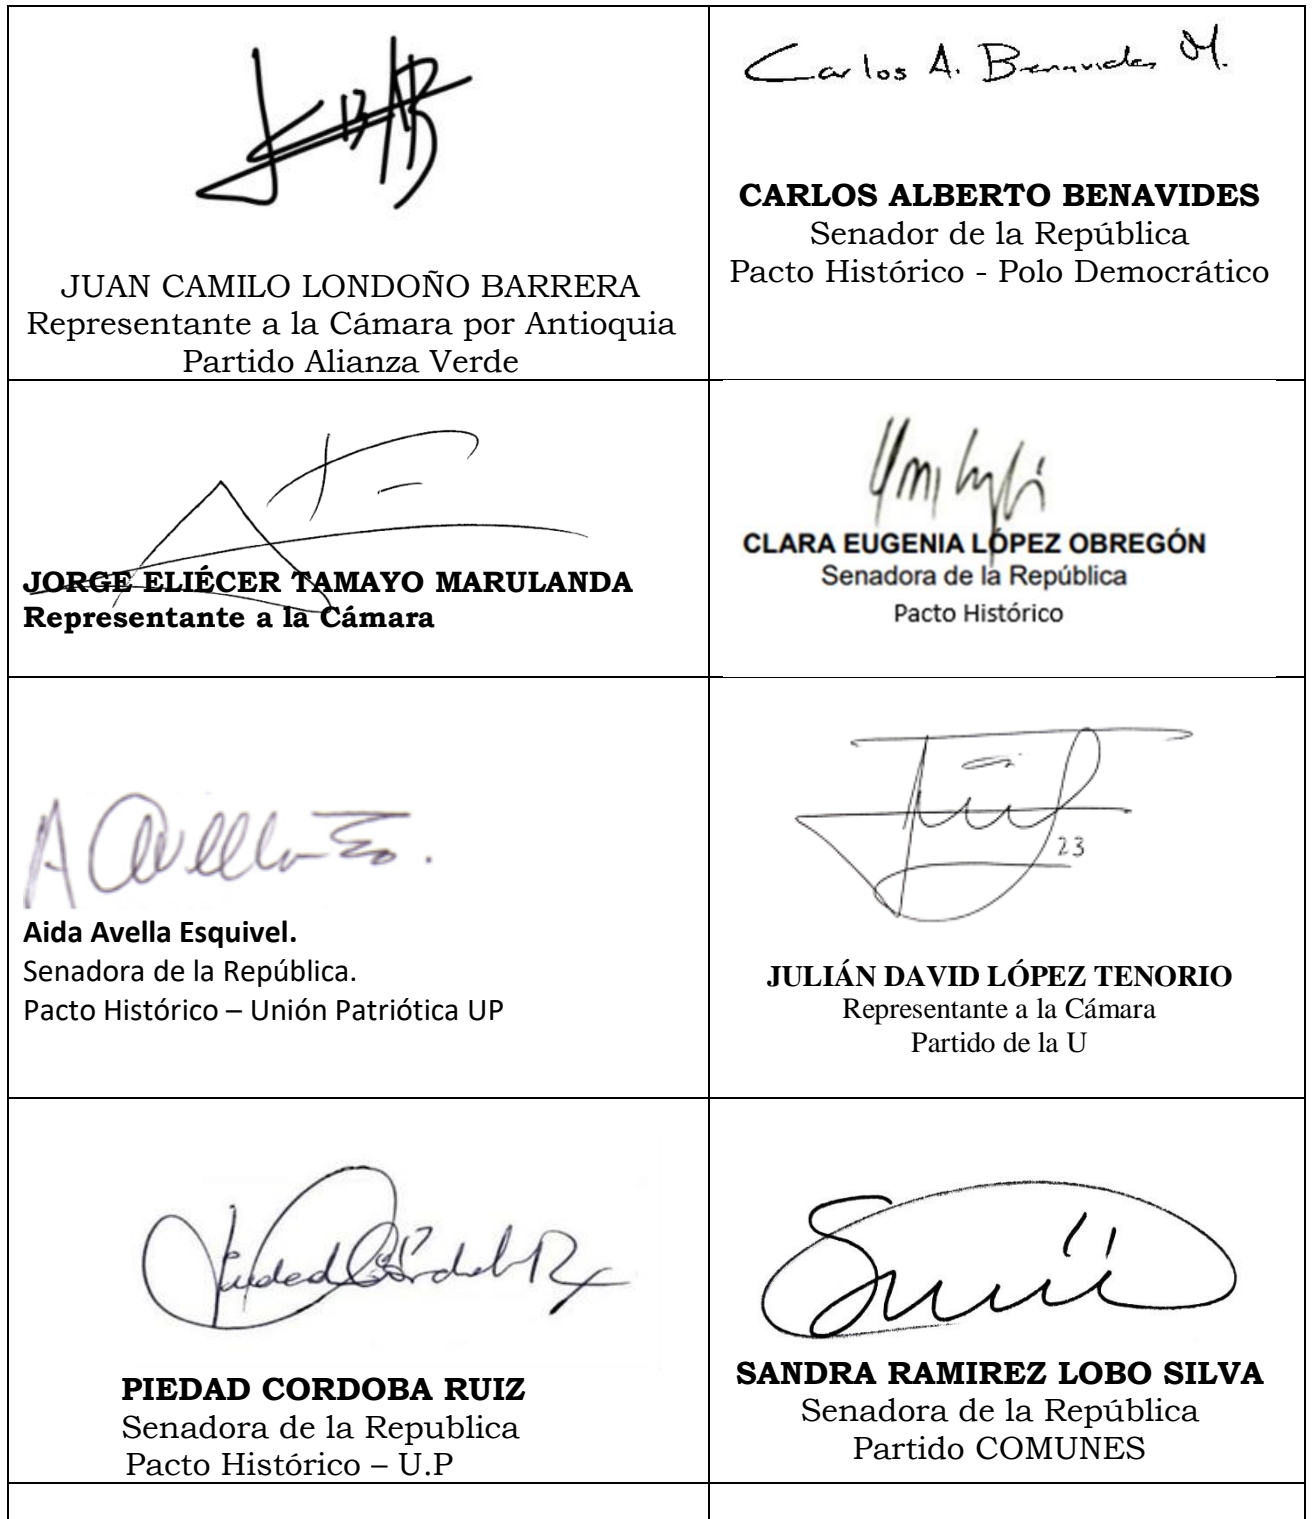 JUAN CAMILO LONDOÑO BARRERA
Representante a la Cámara por Antioquia
Partido Alianza Verde
Carlos A. Benavides M.
CARLOS ALBERTO BENAVIDES
Senador de la República
Pacto Histórico - Polo Democrático
JORGE ELIÉCER TAMAYO MARULANDA
Representante a la Cámara
CLARA EUGENIA LÓPEZ OBREGÓN
Senadora de la República
Pacto Histórico
A Avella E.
Aida Avella Esquivel.
Senadora de la República.
Pacto Histórico – Unión Patriótica UP
23
JULIÁN DAVID LÓPEZ TENORIO
Representante a la Cámara
Partido de la U
Piedad Córdoba R
PIEDAD CORDOBA RUIZ
Senadora de la Republica
Pacto Histórico – U.P
SANDRA RAMIREZ LOBO SILVA
Senadora de la República
Partido COMUNES